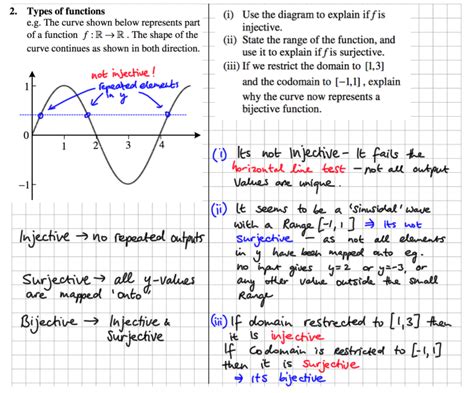 2. Types of functions
e.g. The curve shown below represents part
of a function f : ℝ → ℝ. The shape of the
curve continues as shown in both direction.
(i) Use the diagram to explain if f is
injective.
(ii) State the range of the function, and
use it to explain if f is surjective.
(iii) If we restrict the domain to [1,3]
and the codomain to [−1,1], explain
why the curve now represents a
bijective function.
not injective!
repeated elements
in y
1
0
1
2
3
4
−1
Injective → no repeated outputs
Surjective → all y-values
are mapped 'onto'
Bijective → Injective &
Surjective
(i) Its not Injective - It fails the
horizontal line test - not all output
Values are unique.
(ii) It seems to be a 'sinusidal' wave
with a Range [-1, 1] ⇒ Its not
Surjective - as not all elements
in y have been mapped onto eg.
no input gives y=2 or y=-3, or
any other value outside the small
Range
(iii) If domain restrected to [1,3] then
it is injective
If Codomain is restricted to [-1,1]
then it is Surjective
⇒ its bijective